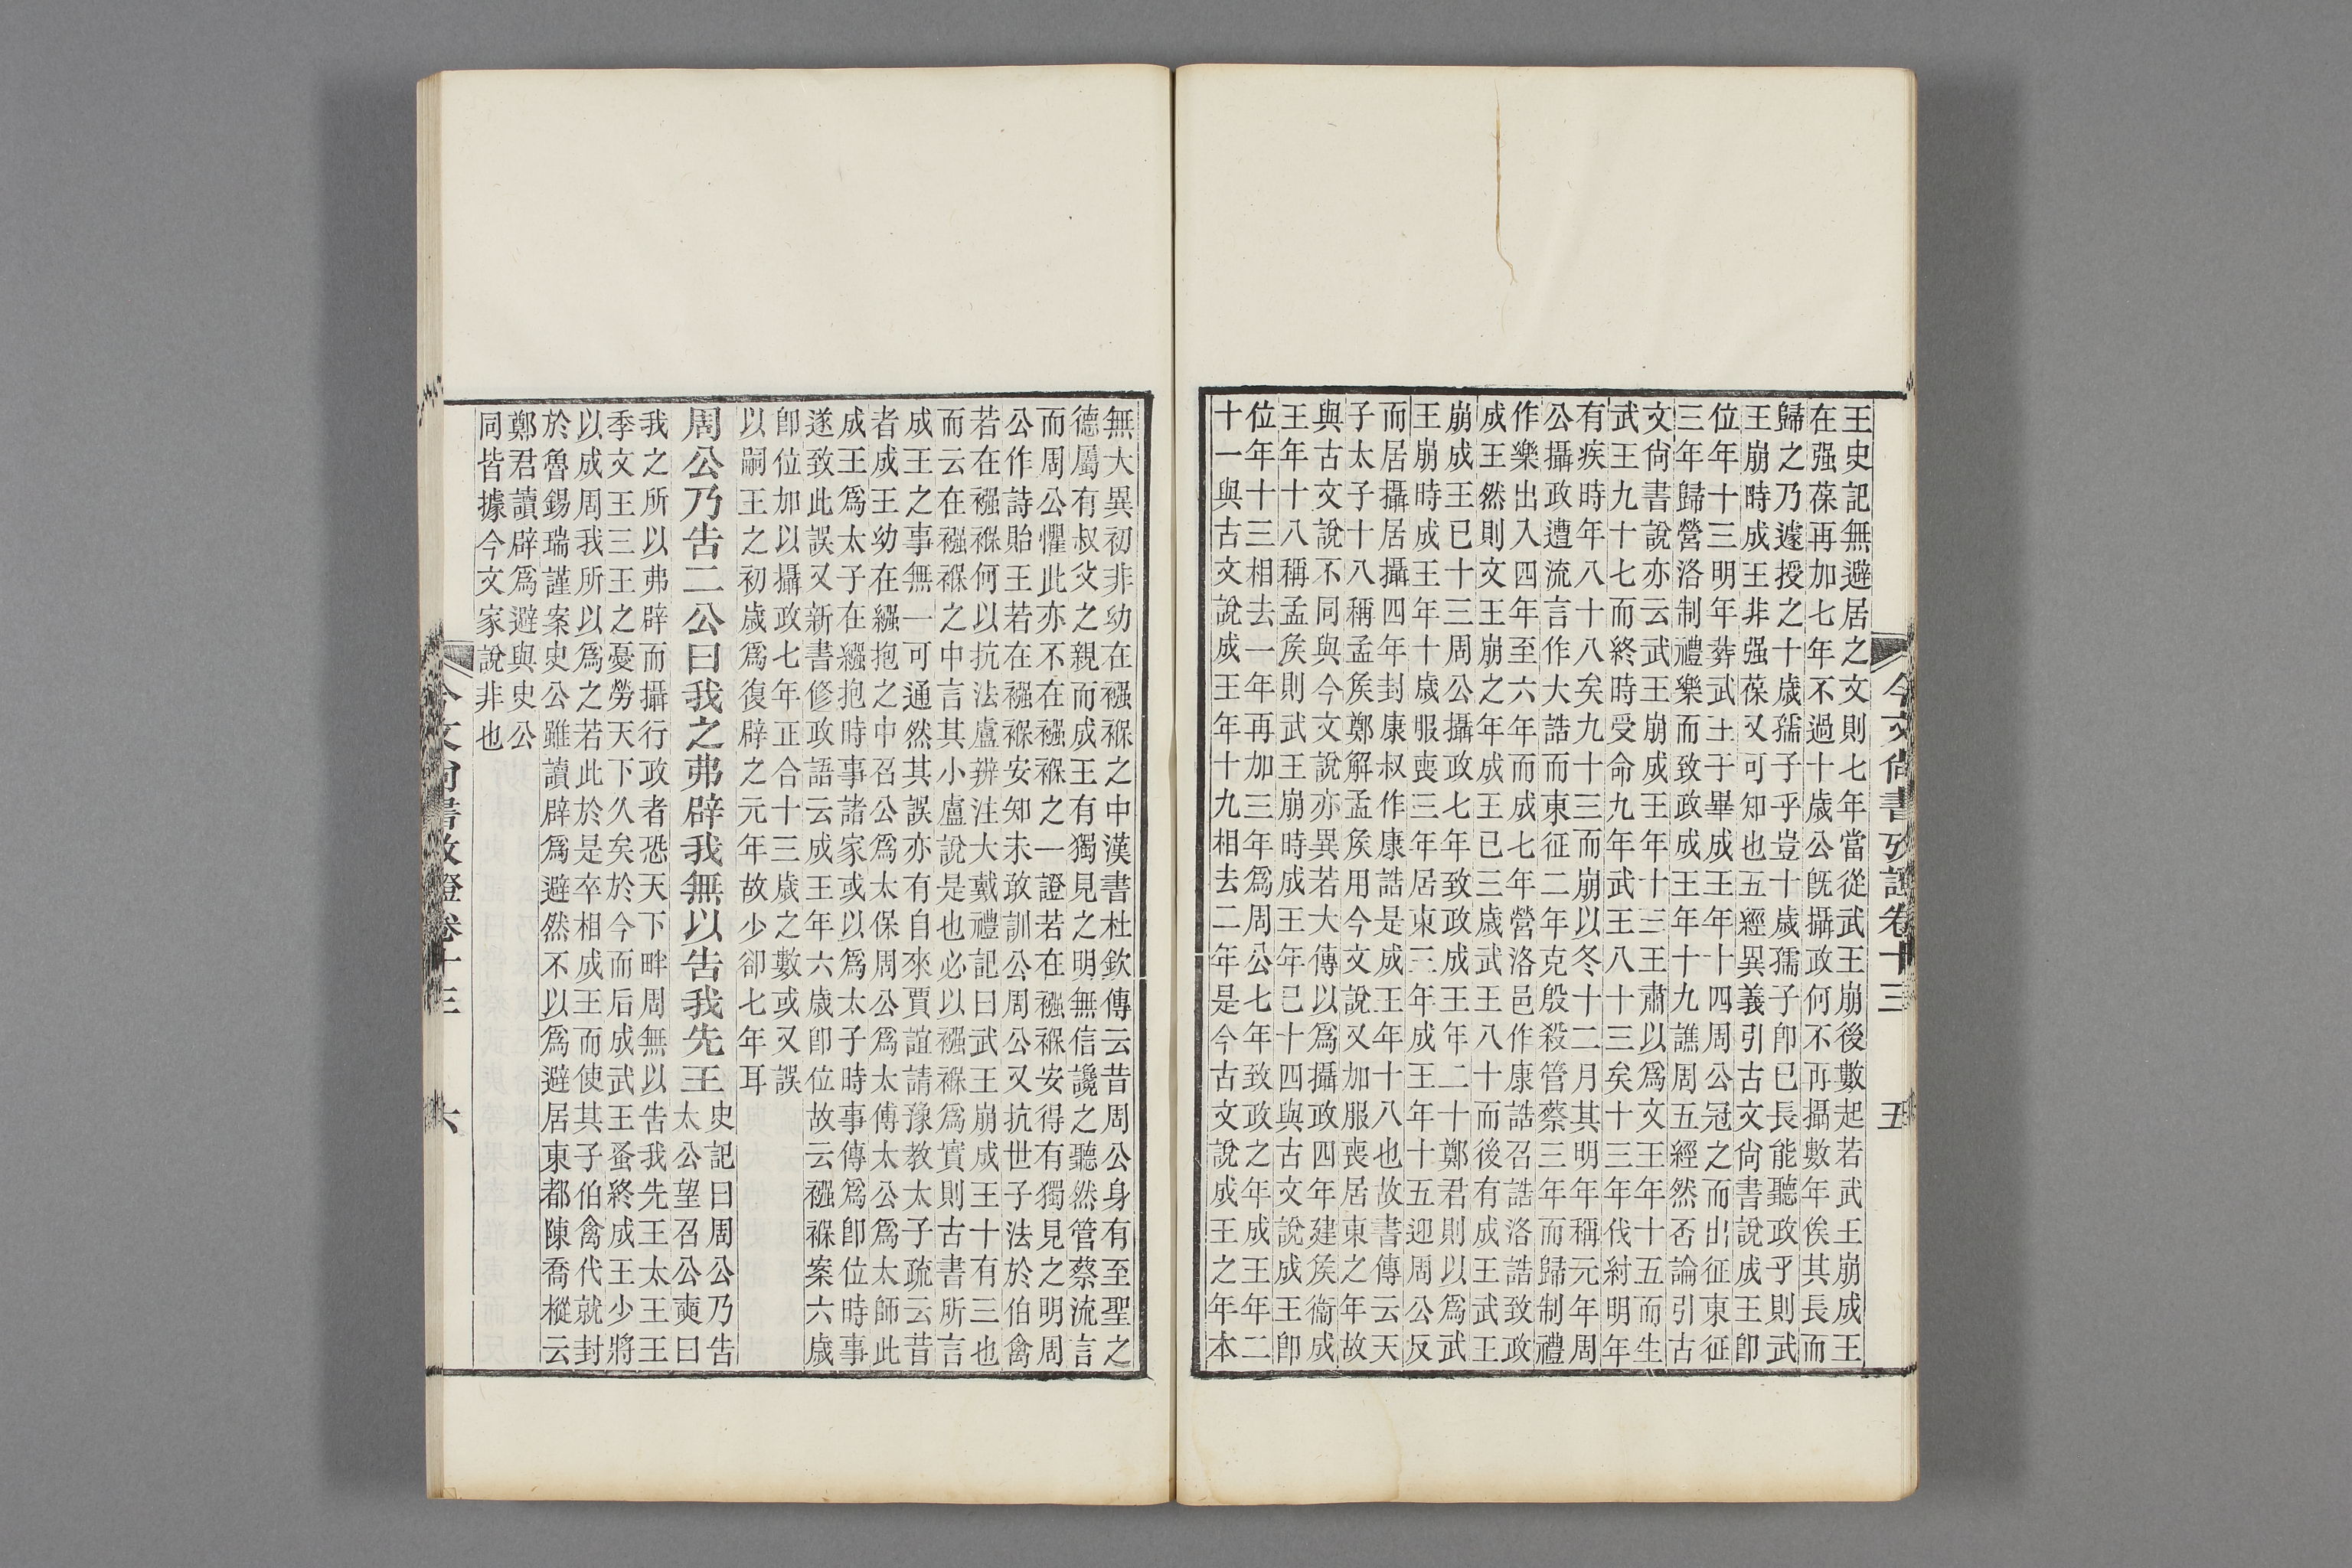 王史記無避居之文則七年當從武王崩後數起若武王崩成王
在强葆再加七年不過十歲公旣攝政何不再攝數年俟其長而
歸之乃遽授之十歲孺子乎豈十歲孺子卽已長能聽政乎則武
王崩時成王非强葆又可知也五經異義引古文尙書說成王卽
位年十三明年葬武王于畢成王年十四周公冠之而出征東征
三年歸營洛制禮樂而致政成王年十九譙周五經然否論引古
文尙書說亦云武王崩成王年十三王肅以爲文王年十五而生
武王九十七而終時受命九年武王八十三矣十三年伐紂明年
有疾時年八十八矣九十三而崩以冬十二月其明年稱元年周
公攝政遭流言作大誥而東征二年克殷殺管蔡三年而歸制禮
作樂出入四年至六年而成七年營洛邑作康誥召誥洛誥致政
成王然則文王崩之年成王已三歲武王八十而後有成王武王
崩成王已十三周公攝政七年致政成王年二十鄭君則以爲武
王崩時成王年十歲服喪三年居東三年成王年十五迎周公反
而居攝居攝四年封康叔作康誥是成王年十八也故書傳云天
子太子十八稱孟矦鄭解孟矦用今文說又加服喪居東之年故
與古文說不同與今文說亦異若大傳以爲攝政四年建矦衞成
王年十八稱孟矦則武王崩時成王年已十四與古文說成王卽
位年十三相去一年再加三年爲周公七年致政之年成王年二
十一與古文說成王年十九相去二年是今古文說成王之年本
今文尙書攷證卷十三
五
無大異初非幼在襁褓之中漢書杜欽傳云昔周公身有至聖之
德屬有叔父之親而成王有獨見之明無信讒之聽然管蔡流言
而周公懼此亦不在襁褓之一證若在襁褓安得有獨見之明周
公作詩貽王若在襁褓安知未敢訓公周公又抗世子法於伯禽
若在襁褓何以抗法盧辨注大戴禮記曰武王崩成王十有三也
而云在襁褓之中言其小盧說是也必以襁褓爲實則古書所言
成王之事無一可通然其誤亦有自來賈誼請豫教太子疏云昔
者成王幼在繦抱之中召公爲太保周公爲太傅太公爲太師此
成王爲太子在繦抱時事諸家或以爲太子時事傳爲卽位時事
遂致此誤又新書修政語云成王年六歲卽位故云襁褓案六歲
卽位加以攝政七年正合十三歲之數或又誤
以嗣王之初歲爲復辟之元年故少卻七年耳
周公乃告二公曰我之弗辟我無以告我先王
史記曰周公乃告
太公望召公奭曰
我之所以弗辟而攝行政者恐天下畔周無以告我先王太王王
季文王三王之憂勞天下久矣於今而后成武王蚤終成王少將
以成周我所以爲之若此於是卒相成王而使其子伯禽代就封
於魯錫瑞謹案史公雖讀辟爲避然不以爲避居東都陳喬樅云
鄭君讀辟爲避與史公
同皆據今文家說非也
今文尙書攷證卷十三
六